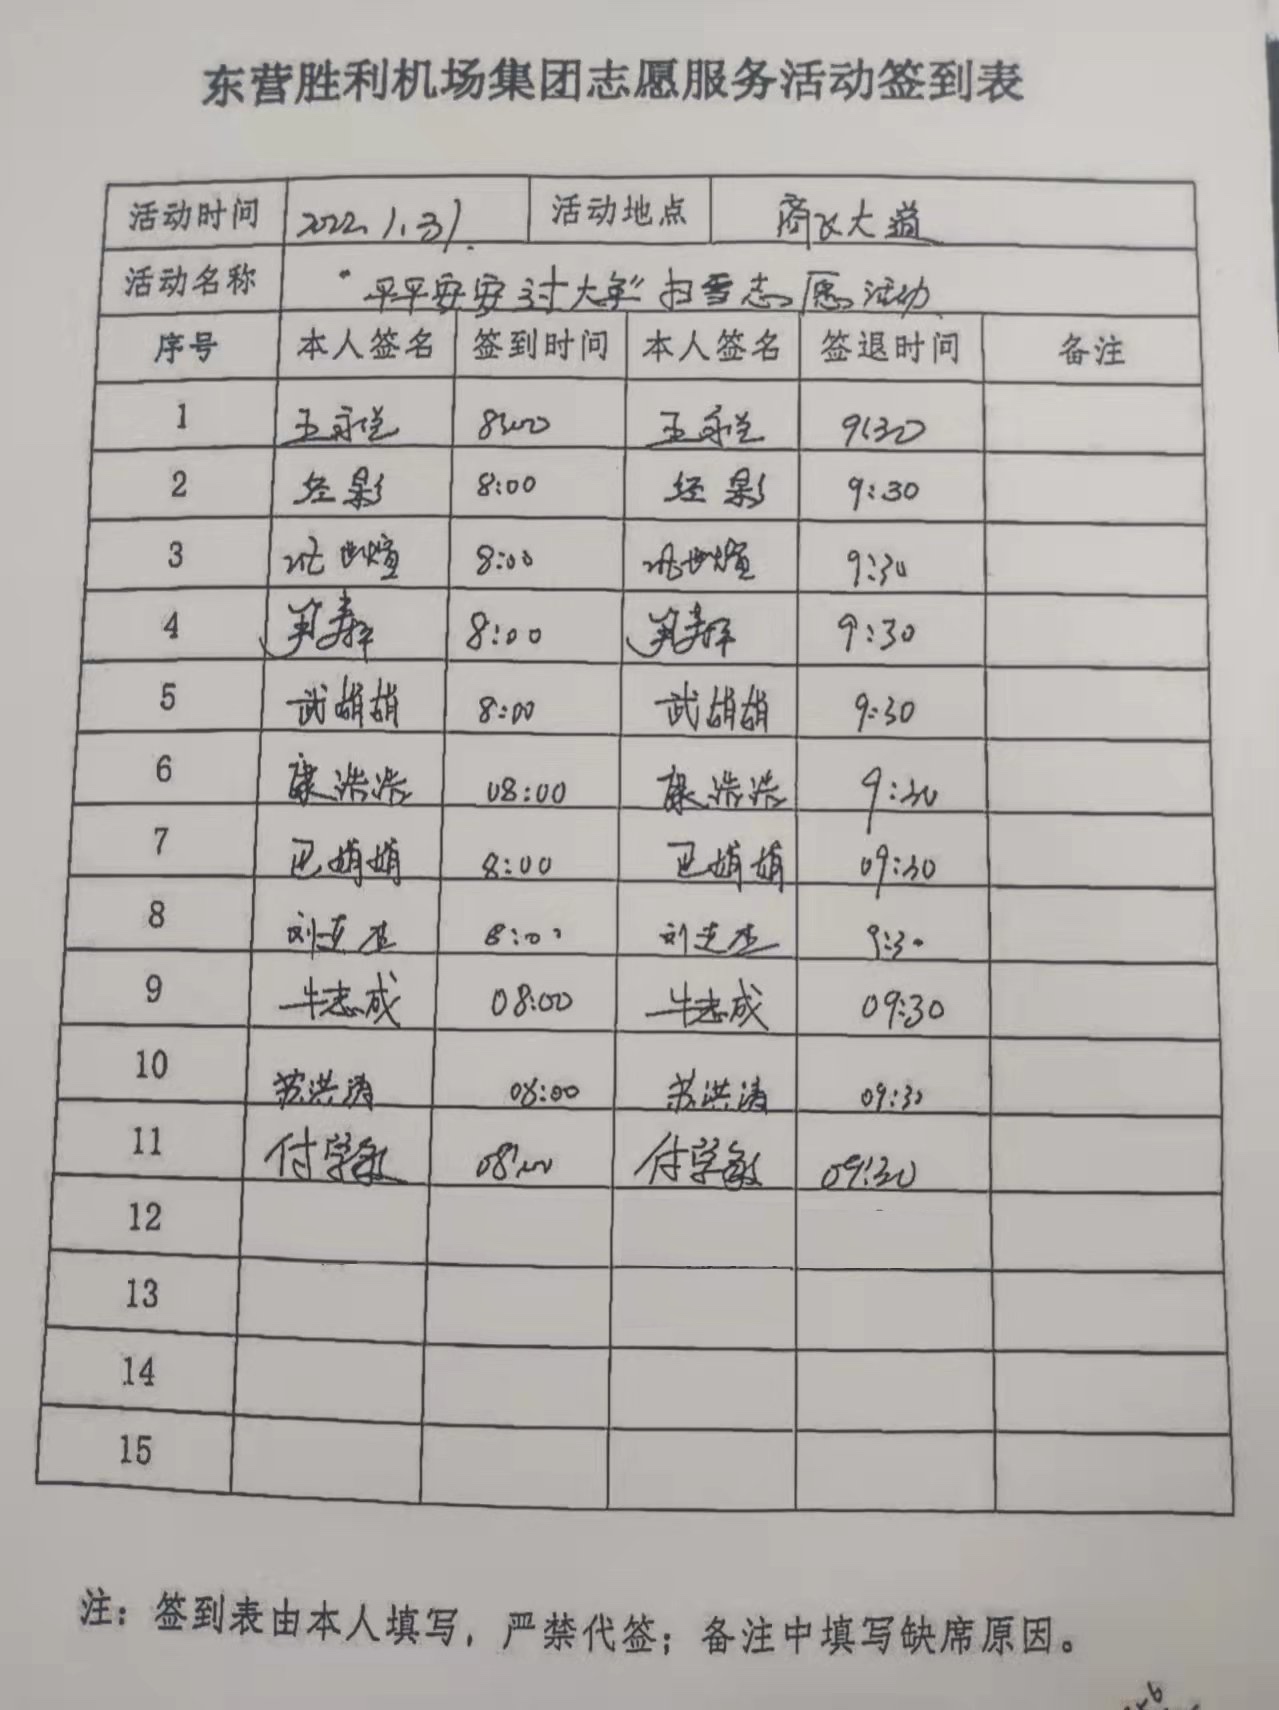 东营胜利机场集团志愿服务活动签到表
活动时间 2022.1.31. 活动地点 商飞大道
活动名称 "平平安安过大年"扫雪志愿活动
序号 本人签名 签到时间 本人签名 签退时间 备注
1 8:00 9:30
2 8:00 9:30
3 8:00 9:30
4 8:00 9:30
5 武娟娟 8:00 武娟娟 9:30
6 康浩浩 08:00 康浩浩 9:30
7 卫娟娟 8:00 卫娟娟 09:30
8 8:00 9:30
9 牛志成 08:00 牛志成 09:30
10 苏洪涛 08:00 苏洪涛 09:30
11 付学敏 08:00 付学敏 09:30
12
13
14
15
注：签到表由本人填写，严禁代签；备注中填写缺席原因。